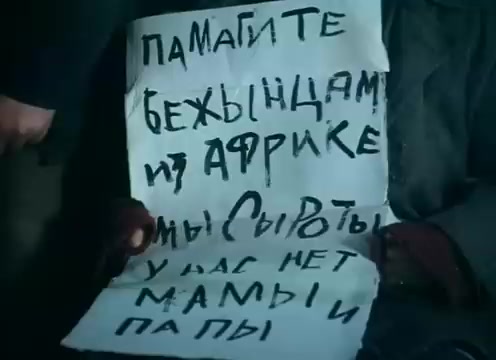 ПАМАГИТЕ
БЕЖЫНЦАМ
ИЗ АФРИКЕ
МЫ СЫРОТЫ
У НАС НЕТ
МАМЫ И
ПАПЫ